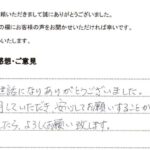 頼いただきまして誠にありがとうございました。
の欄にお客様の声をお聞かせいただければ幸いです。
いいたします。
感想・ご意見
世話になりありがとうございました。
していただき、安心してお願いすることが
したら、よろしくお願い致します。